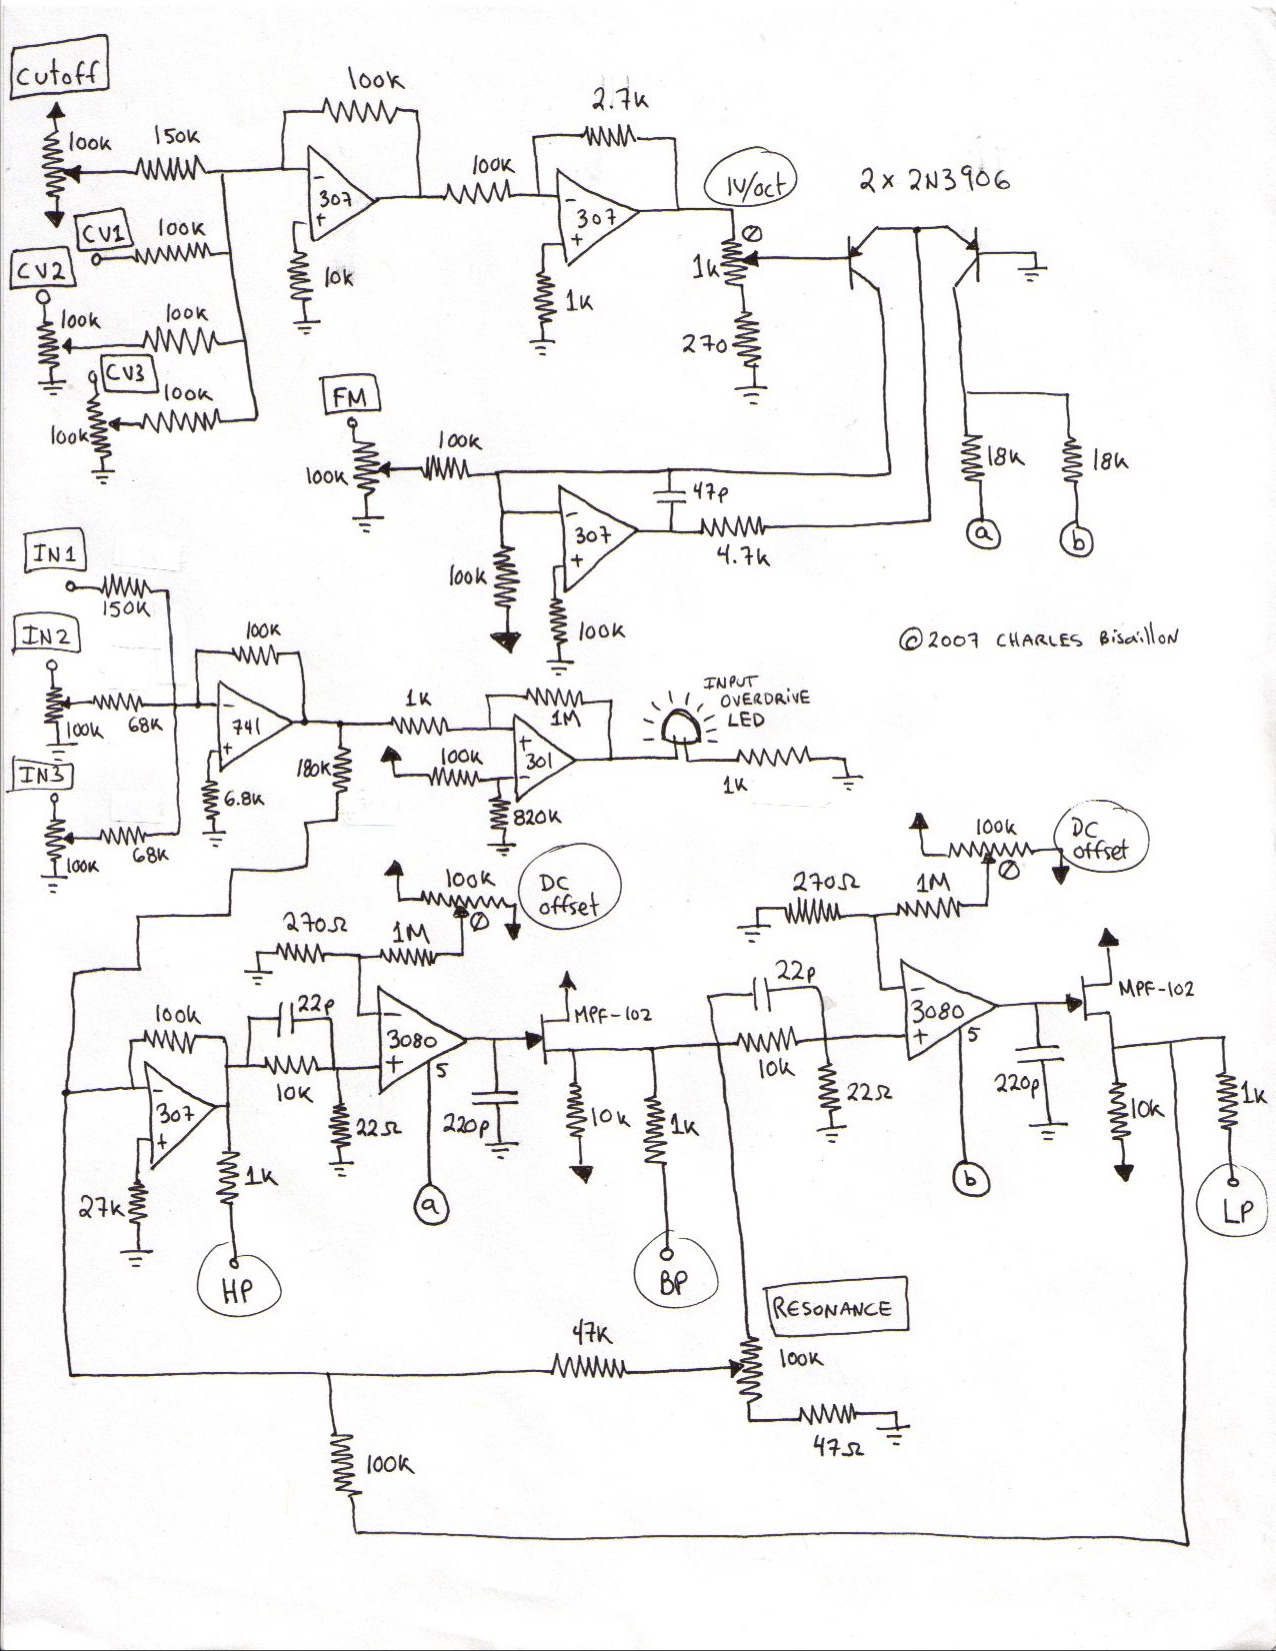 Cutoff
100k
150k
100k
307
10k
CV1
100k
CV2
100k
100k
CV3
100k
100k
100k
2.7k
307
1k
1V/oct
1k
270
2 x 2N3906
18k
18k
a
b
FM
100k
100k
47p
307
4.7k
100k
100k
© 2007 CHARLES Bisaillon
IN1
150k
IN2
100k
68k
IN3
100k
68k
100k
741
6.8k
180k
1k
1M
100k
301
820k
INPUT
OVERDRIVE
LED
1k
100k
DC
offset
270Ω
1M
100k
22p
10k
307
27k
1k
HP
3080
5
22Ω
a
220p
MPF-102
10k
1k
BP
100k
DC
offset
270Ω
1M
22p
10k
3080
5
22Ω
b
220p
MPF-102
10k
1k
LP
RESONANCE
47k
100k
47Ω
100k